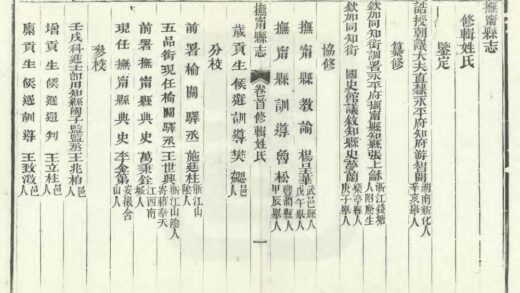 撫甯縣志
修輯姓氏
鑒定
誥授朝議大夫直隸永平府知府游智開 湖南新化人 辛亥舉人
纂修
欽加同知銜調署永平府撫甯縣知縣張上龢 浙江錢塘人附監生
欽加同知銜 國史館議敘知縣史夢蘭 樂亭縣人 庚子舉人
協修
撫甯縣教諭楊呈華 武邑縣人 戊午舉人
撫甯縣訓導魯松 豐潤縣人 甲辰舉人
撫甯縣志 卷首 修輯姓氏 一
歲貢生候選訓導樊 邑人
分校
前署榆關驛丞施廷桂 浙江山陰人
五品銜現任榆關驛丞王世興 浙江山陰人 寄籍奉天
前署撫甯縣典史萬秉銓 江西南城人
現任撫甯縣典史李金第 安徽含山人
參校
壬戌科進士卽用知縣國子監監丞王兆柏 邑人
增貢生候選通判王立柱 邑人
廩貢生候選訓導王致 邑人